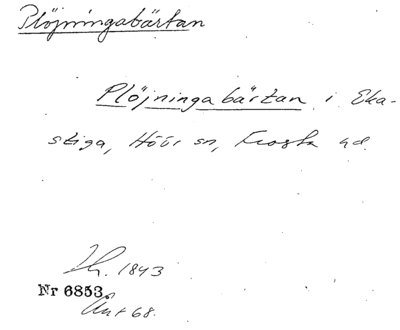 Plöjningabärtan
Plöjningabärtan i Eka-
stiga, Höör sn, Frosta hd.
1843
Nr 6853
68.